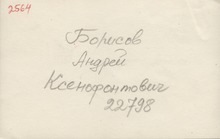 2564
Борисов
Андрей
Ксенофонтович
22798